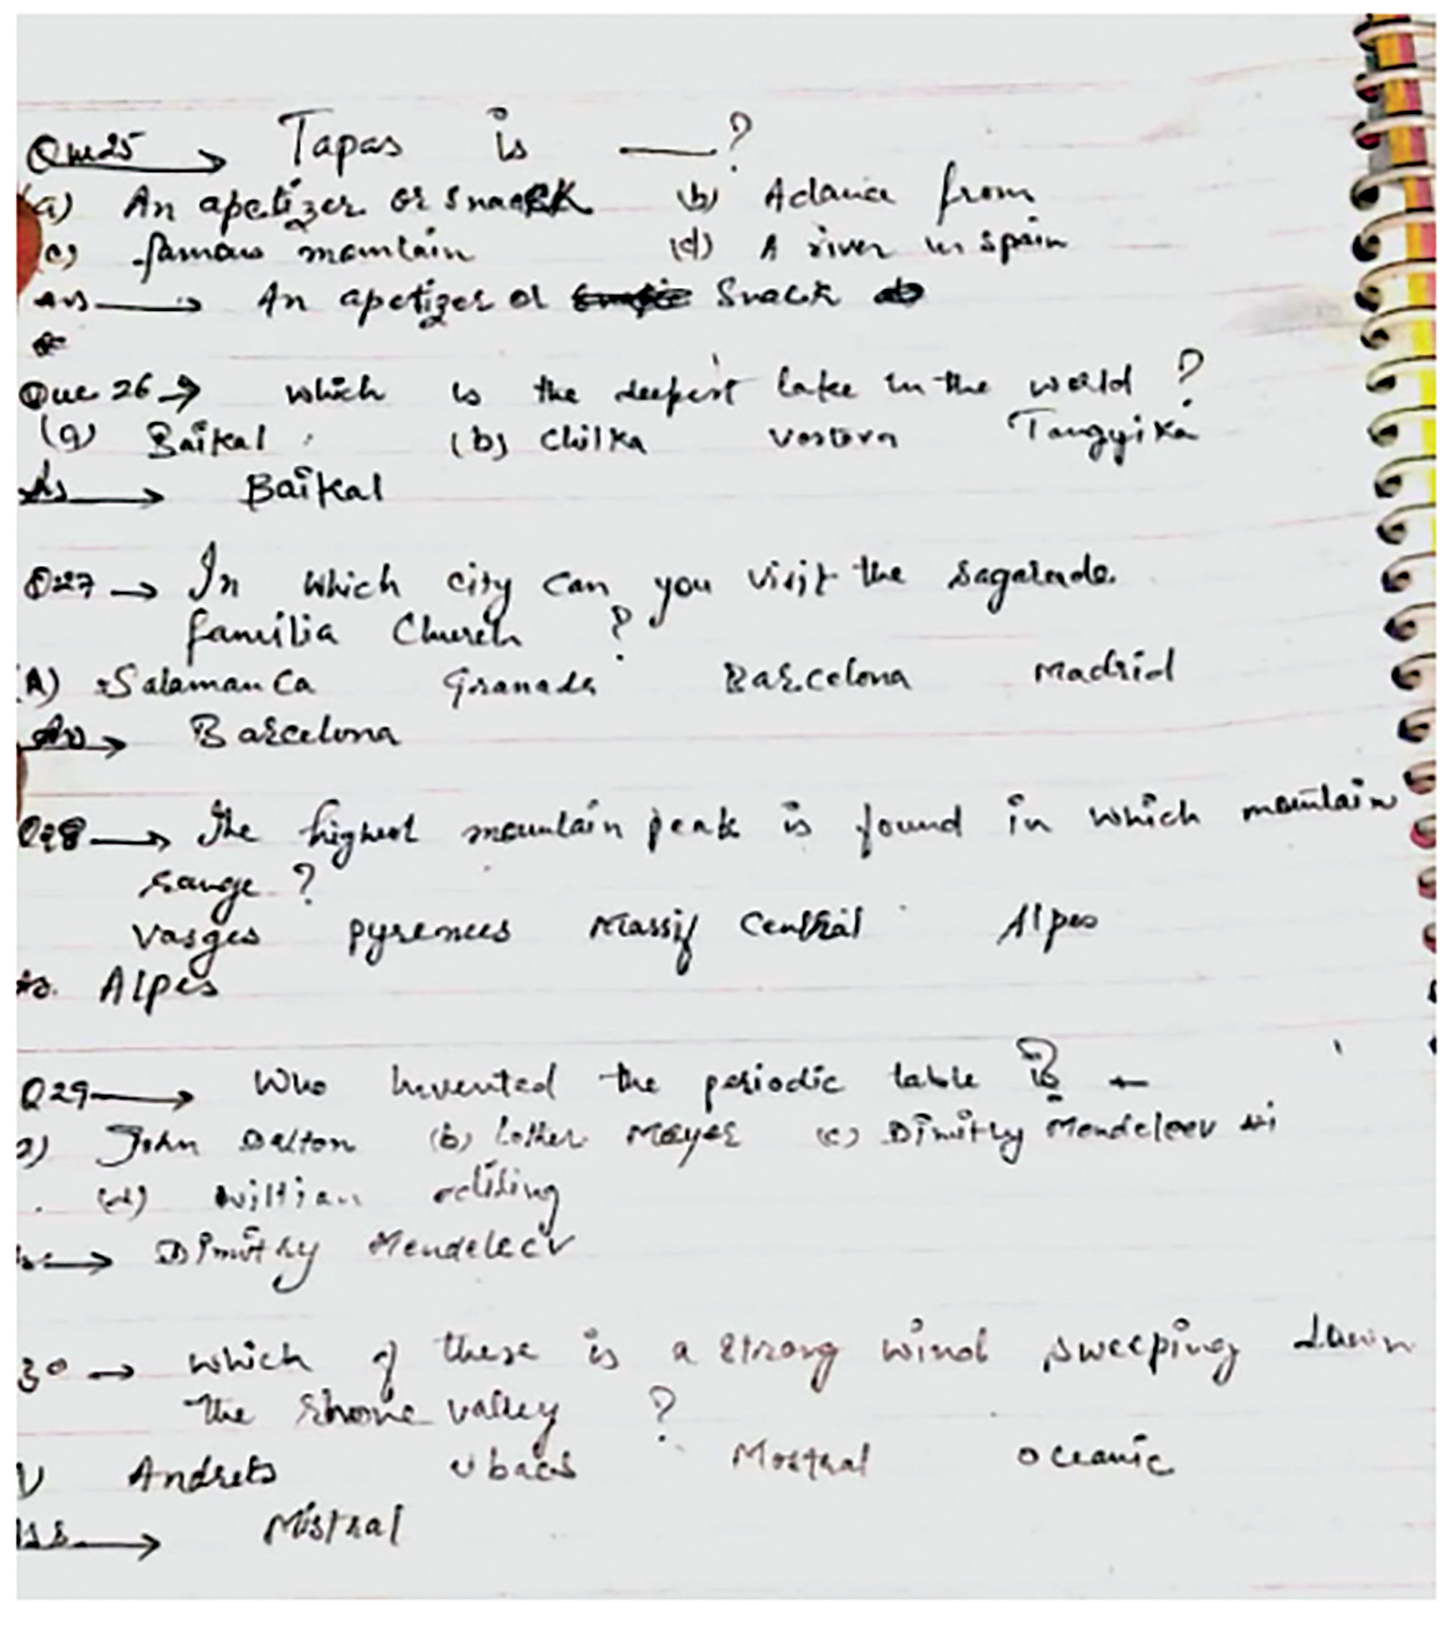 Que25 → Tapas is —?
(a) An apetizer or snack (b) A dance from
(c) famous mountain (d) A river in spain
Ans → An apetizer or Snack
Que 26 → which is the deepest lake in the world ?
(a) Baikal (b) Chilka Vostovn Tangyika
As → Baikal
Q27 → In which city can you visit the sagarade
familia Church ?
(A) Salamanca Granada Barcelona Madrid
As → Barcelona
Q28 → The highest mountain peak is found in which mountain
range ?
Vasges pyrenees Massif Central Alpes
As. Alpes
Q29 → Who invented the periodic table ?
a) John Dalton (b) Lother Mayer (c) Dimithy Mendeleev
(d) willian
→ Dimithy Mendeleev
30 → which of these is a strong wind sweeping down
the rhone valley ?
Andrets Ubacs Mostral oceanic
→ Mistral